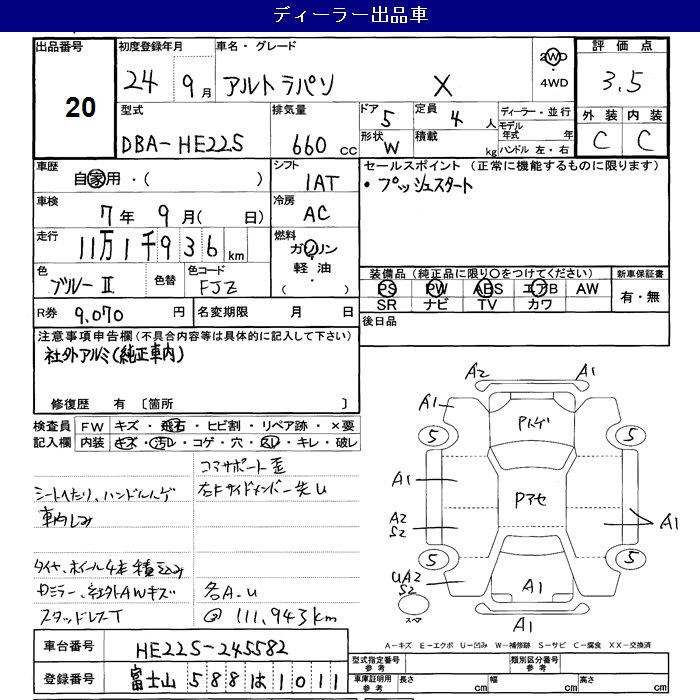 ディーラー出品車
出品番号
20
初度登録年月
24 9月
車名・グレード
アルトラパン X
2WD
・
4WD
評価点
3.5
外装 内装
C C
型式
DBA-HE22S
排気量
660 cc
ドア 5
定員 4 人
形状 W
積載 kg
ディーラー・並行
モデル年式 年
ハンドル 左・右
車歴
自家用・( )
シフト
IAT
セールスポイント (正常に機能するものに限ります)
・プッシュスタート
車検
7年 9月( 日)
冷房
AC
走行
11万1千936km
燃料
ガソリン
・
軽油
・
( )
色
ブルーⅡ
色替
色コード
FJZ
装備品(純正品に限り○をつけてください)
PS PW ABS エアB AW
SR ナビ TV カワ
新車保証書
有・無
R券 9,070 円
名変期限 月 日
後日品
注意事項申告欄(不具合内容等は具体的に記入して下さい)
社外アルミ(純正車内)
修復歴 有 〔箇所 〕
検査員 FW キズ・飛石・ヒビ割・リペア跡・×要
記入欄 内装 キズ・汚レ・コゲ・穴・スレ・キレ・破レ
コアサポート歪
シートへたり、ハンドルハゲ
右Fサイドメンバー先U
車内しみ
タイヤ、ホイール4本積込み
ロミラー、社外AWキズ
各A.U
スタッドレスT
@ 111,943km
A2 A1
A1
Pハゲ
5 5
A1
Pアセ
A2
S2
A1
5 5
UA2
S2
A1
スペア
A1
A-キズ E-エクボ U-凹み W-補修跡 S-サビ C-腐食 XX-交換済
車台番号
HE22S-245582
登録番号
富士山 588 は 1011
型式指定番号
参考
類別区分番号
参考
車庫証明用
参考
長さ cm 幅 cm 高さ cm